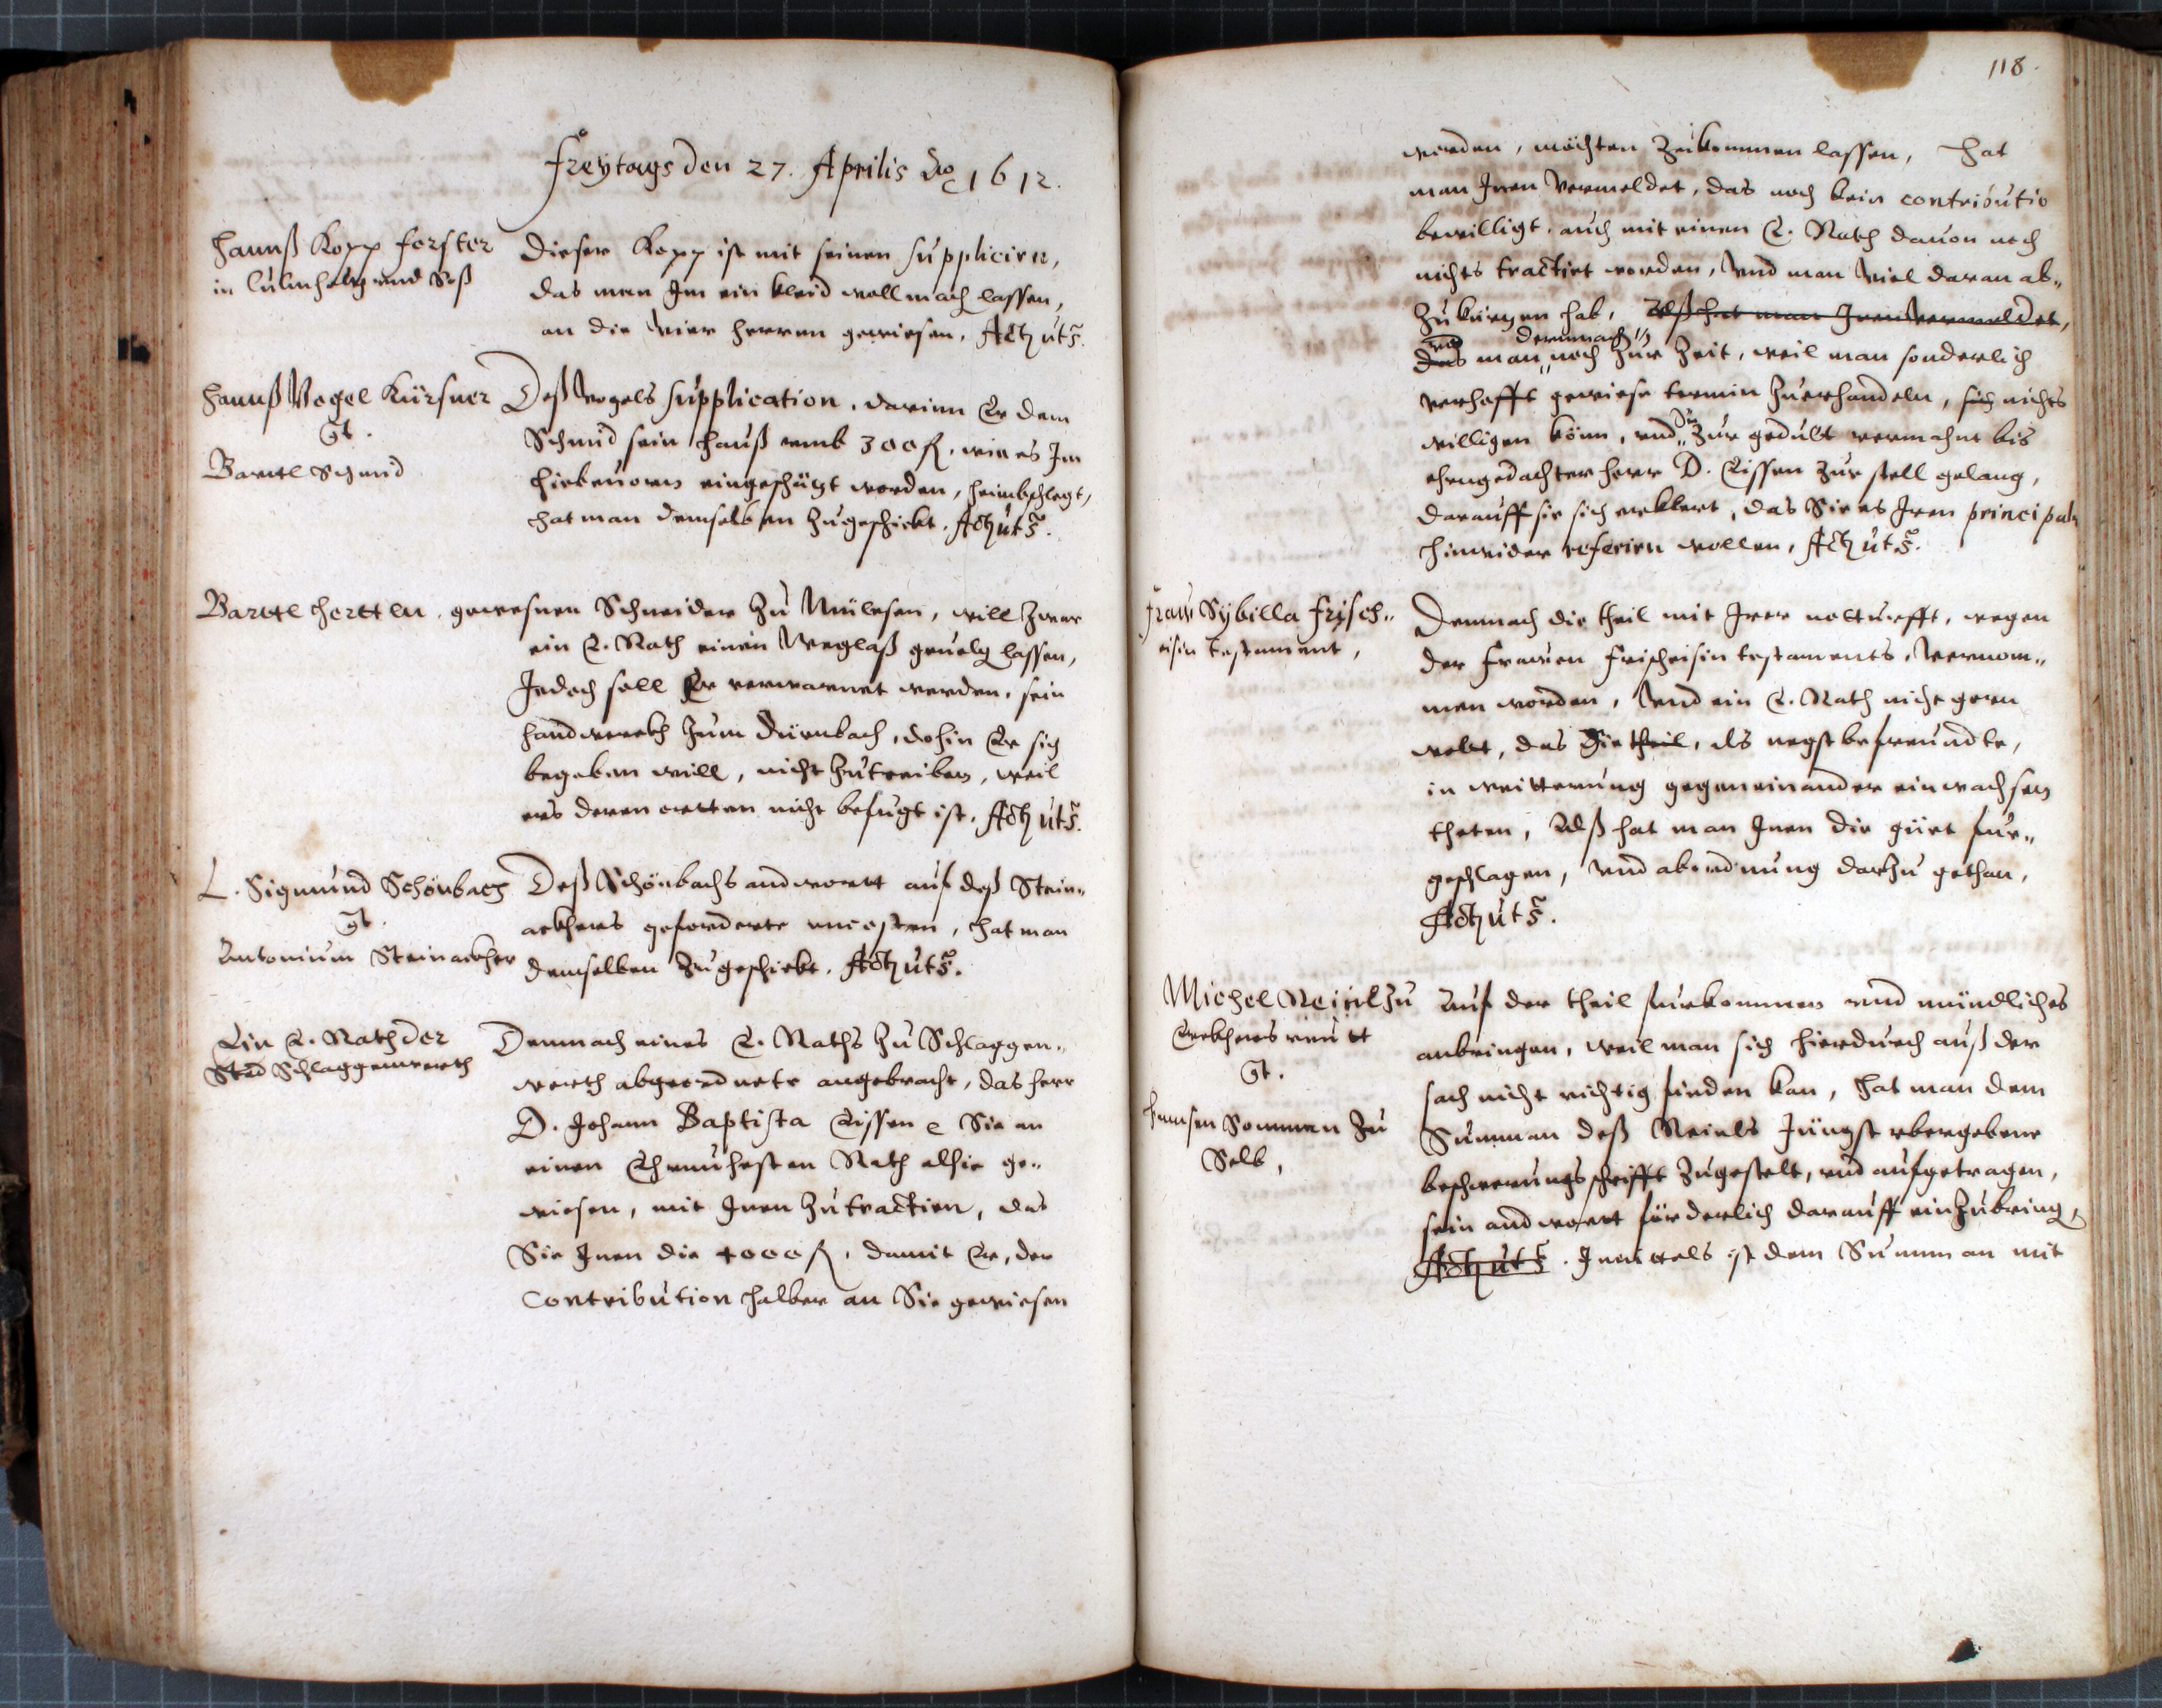 Freÿtags den 27. Aprilis Ao 1612.
Hannß Kopp forster
in Culmholtz und Soß
Dieser Kopp ist mit seinen supplicirn,
das man Im ein kleid woll mach lassen,
an die Vier herren gewiesen. Act. ut s.
Hannß Vogel Kürsner
Ct.
Bartl Schmid
Deß Vogels supplication, darinn Er dem
Schmid sein hauß vmb 300 fl. wie es Im
hiebeuorn eingeschätzt worden, heimbschlegt,
hat man demselben zugeschickt. Act. ut s.
Bartl hertln, gewesnen Schneider zu Mülesen, will zwar
ein E. Rath einen Weglaß geuolg lassen,
Jedoch soll Er verwarnet werden, sein
handwerckh zum Dürnbach, dohin Er sich
begeben will, nicht zutreiben, weil
ers deren orttten nicht befugt ist. Act. ut s.
L. Sigmund Schönbach
Ct.
Antonium Steinackher
Deß Schönbachs andwortt auf deß Stein-
ackhers geforderte vncosten, hat man
demselben zugeschickt. Act. ut s.
Ein E. Rath der
Stad Schlaggenwerth
Demnach eines E. Raths zu Schlaggen-
werth abgeordnete angebracht, das herr
D. Johann Baptista Eissen Sie an
einen Ehrnuhesten Rath alhie ge-
wiesen, mit Inen zutractirn, das
Sie Inen die 4000 fl. damit Er, der
Contribution halber an Sie gewiesen
118.
worden, möchten zukommen lassen, Hat
man Inen vermeldet, das noch kein contributio
bewilligt, auch mit einen E. Rath dauon noch
nichts tractirt worden, Vnd man Viel daran ab-
zukürzen hab, Alß hat man Inen vermeldet,
vnd demnach
das man noch zur Zeit, weil man sonderlich
verhofft gewiese termin zuerhandeln, sich nichts
willigen könn, vnd Sie zur gedult vermahnt bis
ehrngedachter herr D. Eissen zur stell gelang,
darauff sie sich erklert, das Sie es Iren principaln
hinwider referirn wollen, Act. ut s.
Fraw Sybilla Frisch-
eisin testament,
Demnach die theil mit Irer notturfft, wegen
der Frawen Frischeisin testaments, Vernom-
men worden, Vnd ein E. Rath nicht gern
wolt, das die theil, als negst befreundte,
in weitterung gegeneinander einwachsen
theten, Alß hat man Inen die güet für-
geschlagen, Vnd abordnung darzu gethan,
Act. ut s.
Michel Reinl zu
Erkhersreutt
Ct.
Hansen Summan zu
Selb,
Auf der theil fürkommen vnd mündliches
anbringen, weil man sich hierdurch auß der
sach nicht richtig finden kan, hat man dem
Summan deß Reinls Jüngst vbergebene
beschwerungsschrifft zugestelt, vnd aufgetragen,
sein andwortt fürderlich darauff einzubring,
Act. ut s. Inmittels ist dem Summan mit